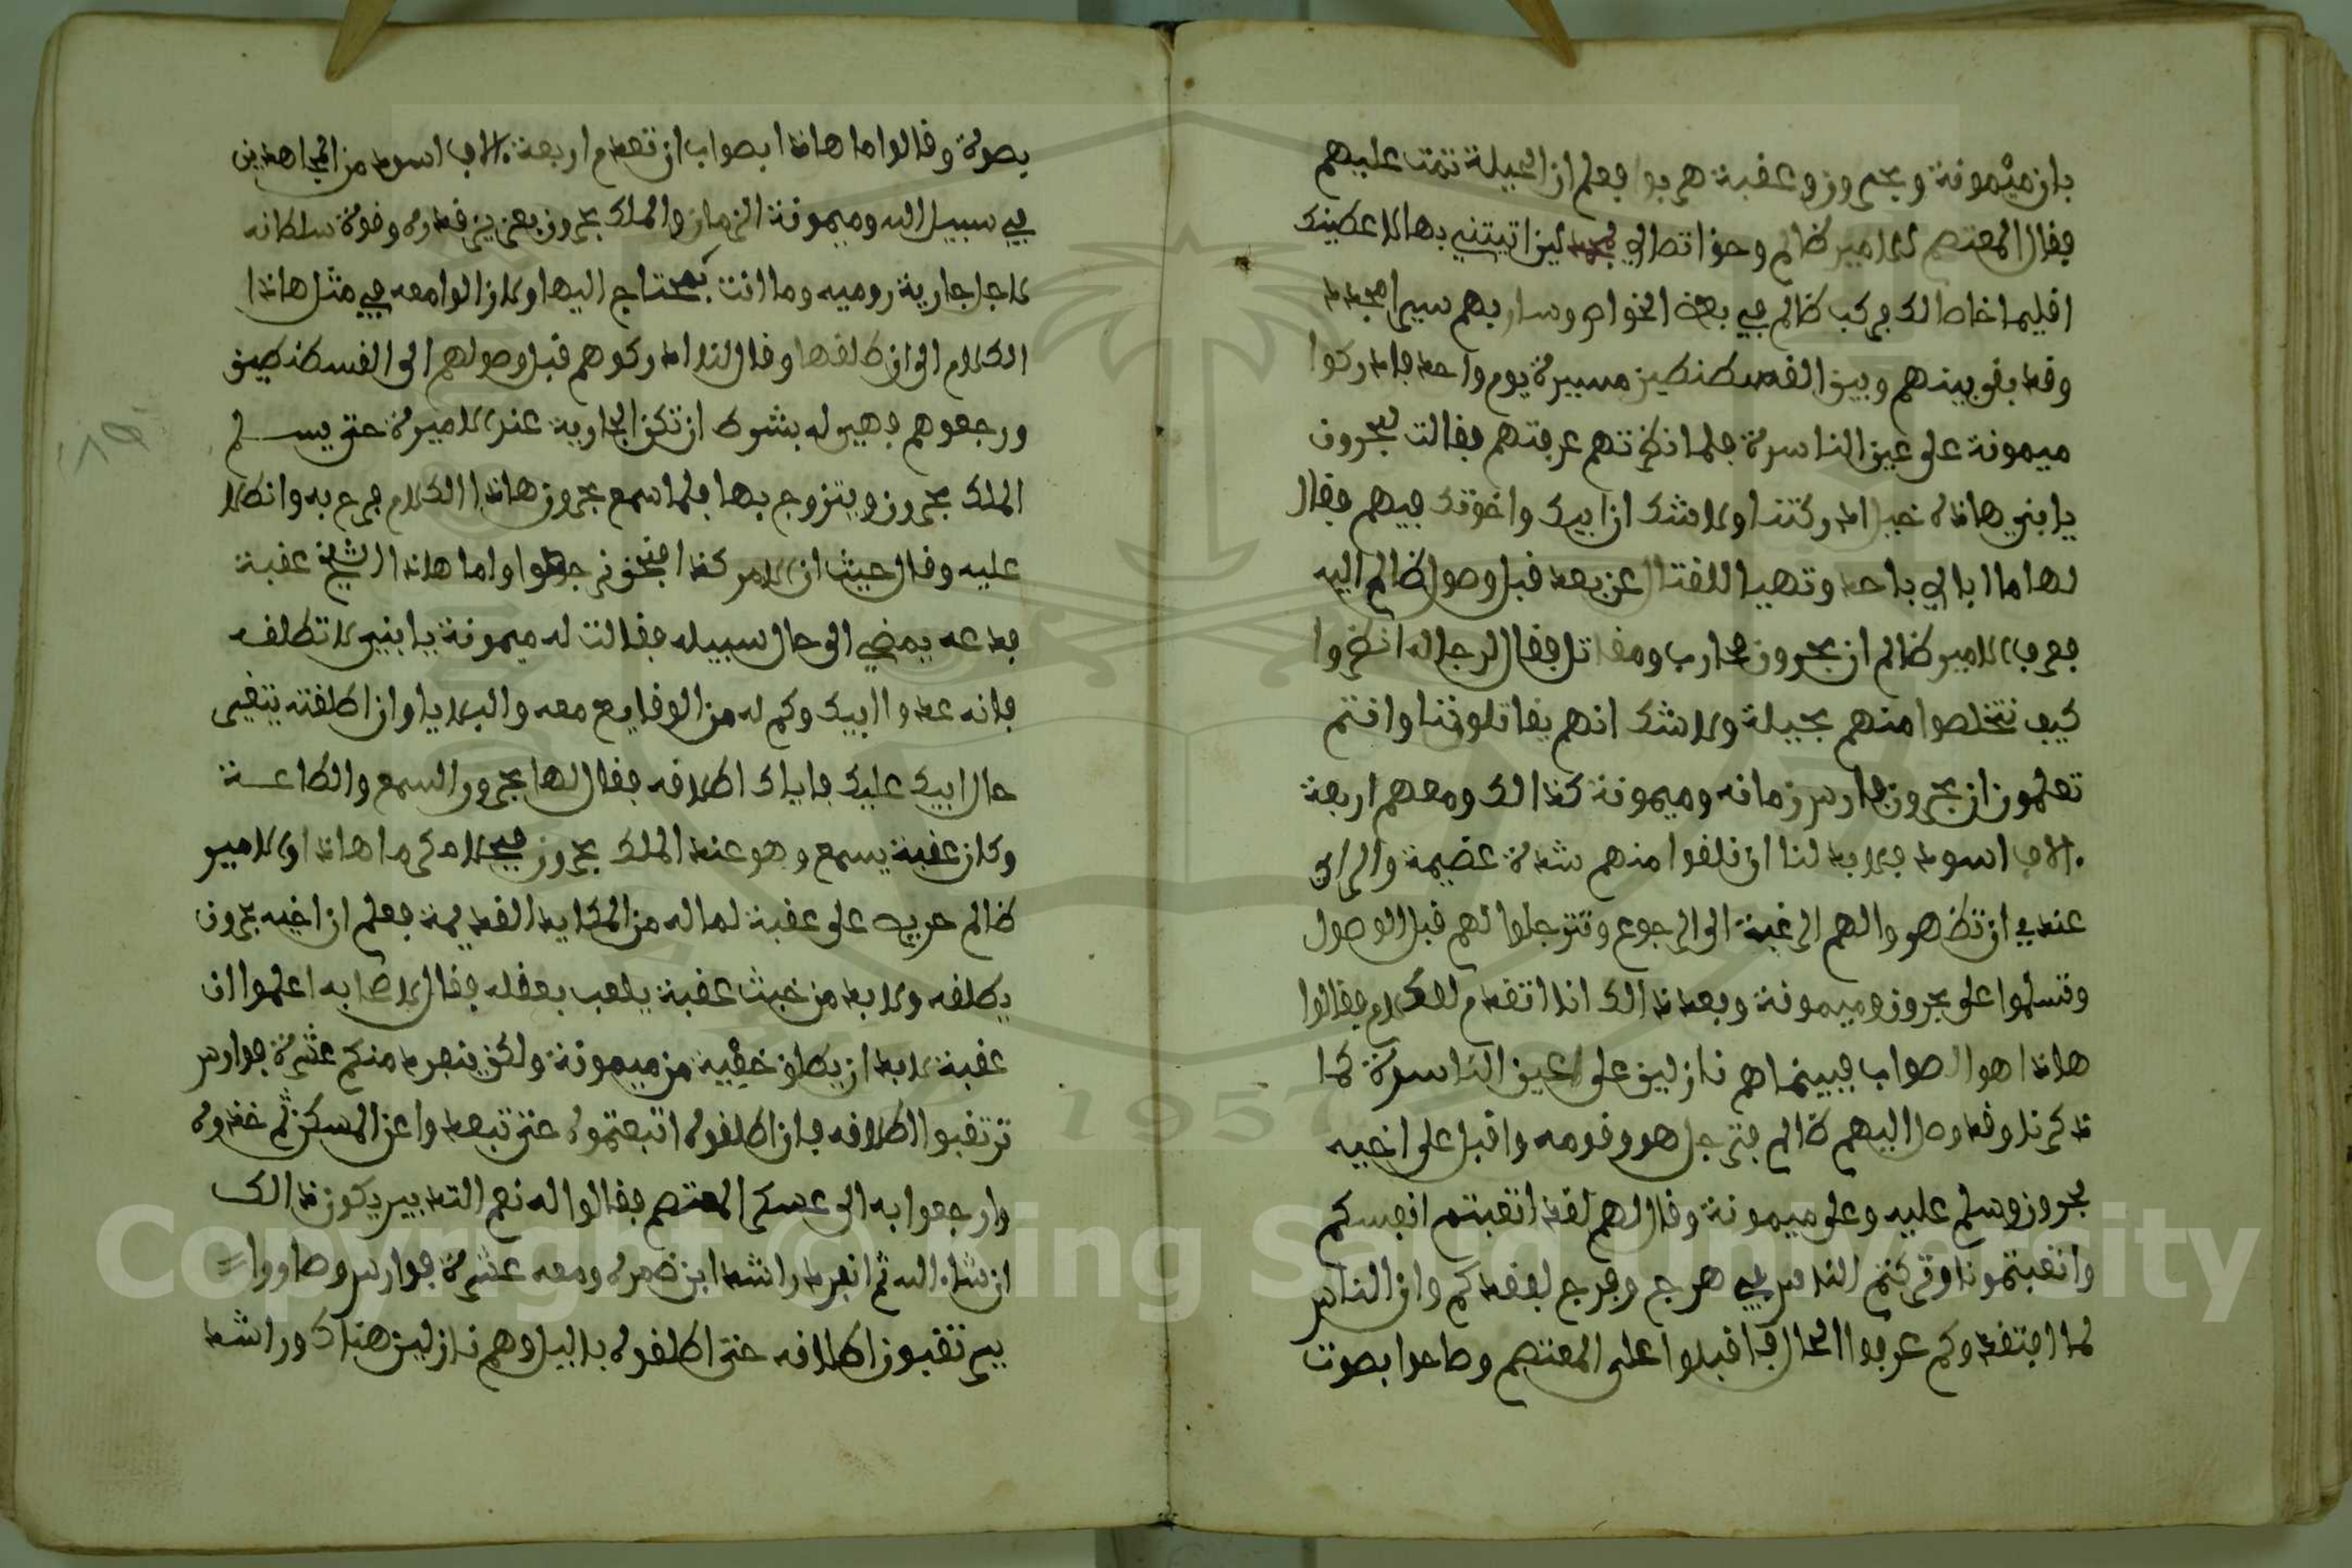 بان ميمونة وبحرون وعقبة هربوا فعلم ان الحيلة تمت عليهم
فقال المعتصم للامير ظالم وحق اتصالي لين اتيتني بها لاعطينك
اقليما اخاذالك فركب ظالم في بعض الخواص وسار بهم سيرا مجددا
وقد بقي بينهم وبين القسطنطين مسيرة يوم واحد فادركوا
ميمونة على عين الناسرة فلما نظرتهم عرفتهم فقالت لبحرون
يا بني هاذه خيل ادركتنا ولا شك ان ابيك واخوتك فيهم فقال
لها ما ابالي باحد وتهيا للقتال عن بعد قبل وصول ظالم اليه
فعرف الامير ظالم ان بحرون محارب ومقاتل فقال لرجاله انظروا
كيف نتخلصوا منهم بحيلة ولا شك انهم يقاتلوننا وانتم
تعلمون ان بحرون فارس زمانه وميمونة كذالك ومعهم اربعة
ءالاف اسود فلا بد لنا ان نلقوا منهم شدة عضيمة والراي
عندي ان تظهروا لهم الرغبة الى الرجوع وتترجلوا لهم قبل الوصول
وتسلموا على بحرون وميمونة وبعد ذالك انا اتقدم للكلام فقالوا
هاذا هو الصواب فبينما هم نازلين على عين الناسرة كما
ذكرنا وقد وصل اليهم ظالم فترجل هو وقومه واقبل على اخيه
بحرون وسلم عليه وعلى ميمونة وقال لهم لقد اتعبتم انفسكم
واتعبتمونا وتركتم الناس في هرج ومرج لفقدكم وان الناس
لما افتقدوكم عرفوا الحال فاقبلوا على المعتصم وصاحوا بصوت
بصولة وقالوا ما هاذا بصواب ان تعدم اربعة ءالاف اسود من المجاهدين
في سبيل الله وميمونة الزمان والملك بحرون بعزيز قدره وقوة سلطانه
لاجل جارية روميه وما انت بمحتاج اليها ولا زالوا معه في مثل هاذا
الكلام الى ان طلقها وقال لنا ادركوهم قبل وصولهم الى القسطنطين
ورجعوهم فهي له بشرط ان تكن الجارية عند الاميرة حتى يسلم
الملك بحرون ويتزوج بها فلما سمع بحرون هاذا الكلام فرح به وانطلا
عليه وقال حيث ان الامر كذا فنحن نرجعوا واما هاذا الشيخ عقبة
فدعه يمضي الى حال سبيله فقالت له ميمونة يا بني لا تطلقه
فانه عدو ابيك وكم له من الوقايع معه والبلايا وان اطلقته يتغير
حال ابيك عليك فاياك اطلاقه فقال لها بحرون السمع والطاعة
وكان عقبة يسمع وهو عند الملك بحرون ما هاذا والامير
ظالم حريص على عقبة لما له من المكايد القديمة فعلم ان اخيه بحرون
يطلقه ولا بد من خبث عقبة يلعب بعقله فقال لاصحابه اعلموا ان
عقبة لا بد ان يطلق خفية من ميمونة ولكن ينفرد منكم عشرة فوارس
ترتقبوا اطلاقه فان اطلقوه اتبعتموه حتى تبعدوا عن المسكن ثم خذوه
وارجعوا به الى عسكر المعتصم فقالوا له نعم التدبير يكون ذالك
ان شاء الله ثم انفرد راشد ابن ضمره ومعه عشرة فوارس وصاروا
يرتقبون اطلاقه حتى اطلقوه بالليل وهم نازلين هناك وراشد